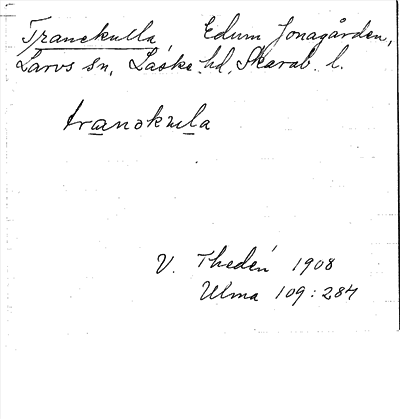 Tranekulla, Edum Jonagården,
Larvs sn, Laske hd, Skarab. l.
tranəkula
V. Thedén 1908
Ulma 109:284